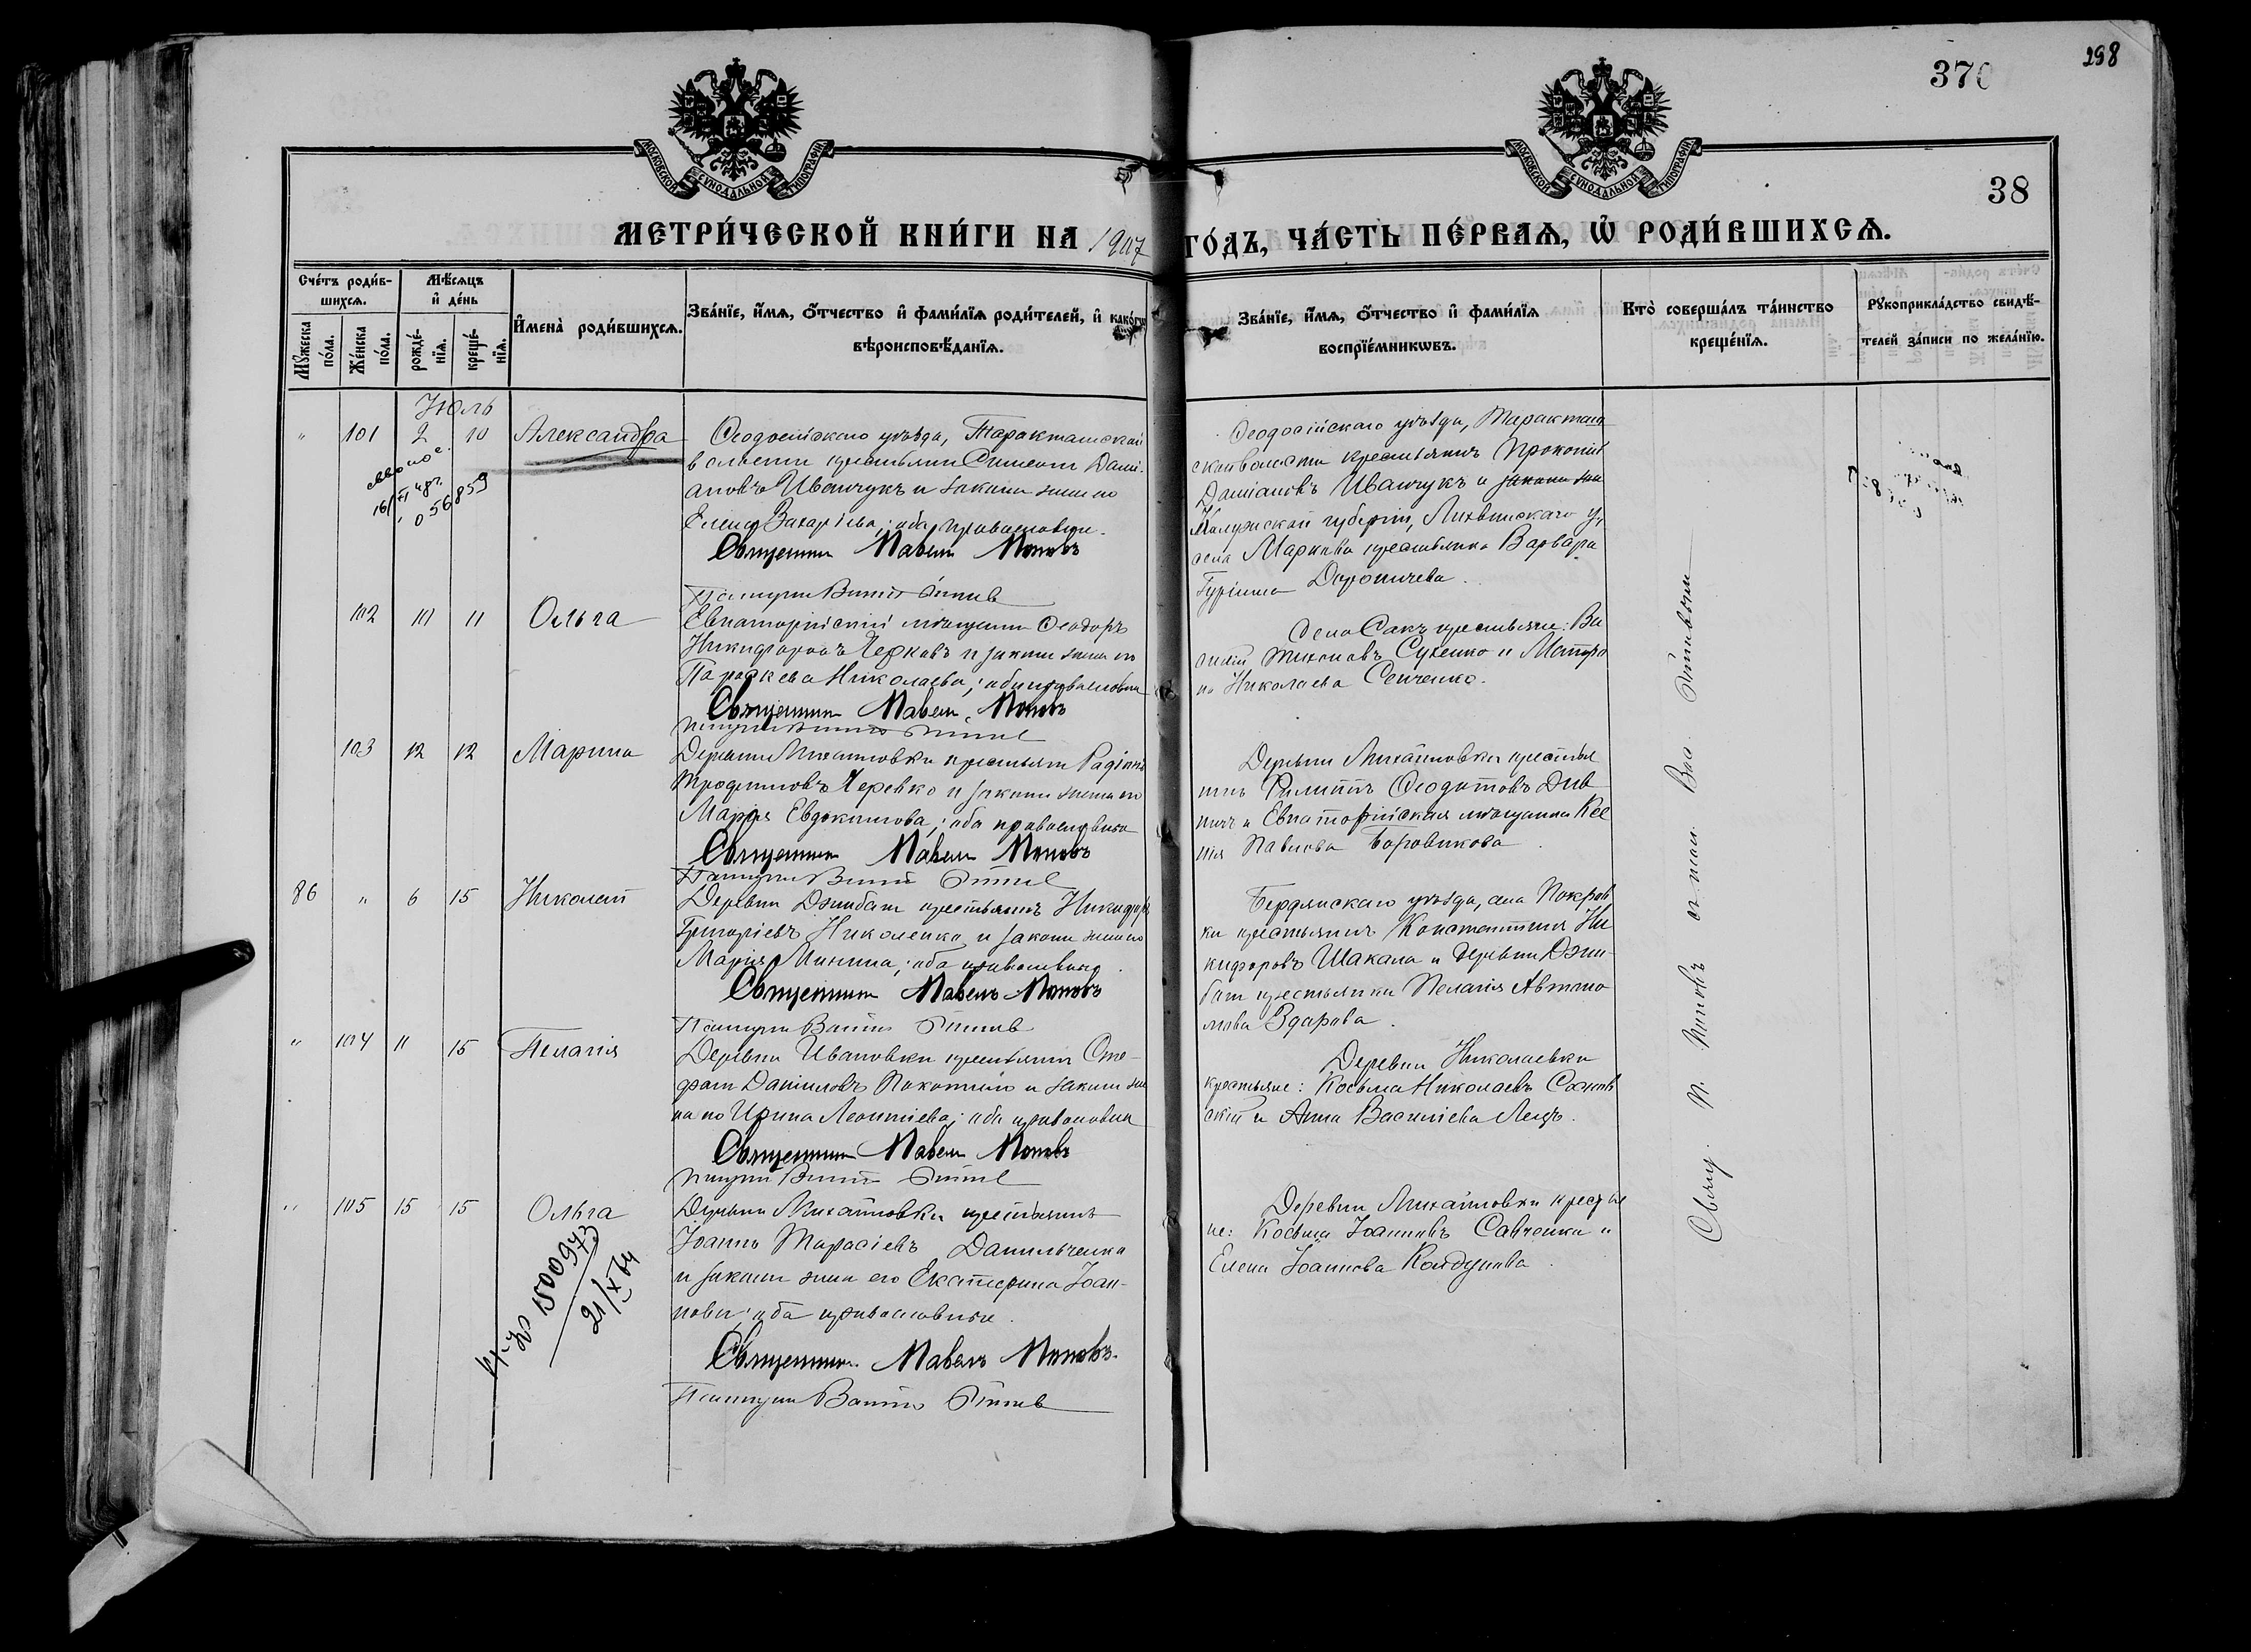 298
370
38
МОСКОВСКОЙ СѴНОДАЛЬНОЙ ТИПОГРАФІИ
МОСКОВСКОЙ СѴНОДАЛЬНОЙ ТИПОГРАФІИ
МЕТРИ́ЧЕСКОЙ КНИ́ГИ НА 1907 ГО́ДЪ, ЧА́СТЬ ПЕ́РВАѦ, Ѡ҆ РОДИ́ВШИХСѦ.
Сче́тъ роди́в-
шихсѧ.
Мꙋ́жеска по́ла.
Же́нска по́ла.
Мѣ́сѧцъ
и҆ де́нь
рожде́-
нїѧ.
креще́-
нїѧ.
И҆мена̀ роди́вшихсѧ.
Зва́нїе, и҆́мѧ, ѻ҆́тчество и҆ фами́лїѧ роди́телей, и҆ како́гѡ
вѣроисповѣ́данїѧ.
Зва́нїе, и҆́мѧ, ѻ҆́тчество и҆ фами́лїѧ
воспрїе́мникѡвъ.
Кто̀ соверша́лъ та́инство
креще́нїѧ.
Рꙋкоприкла́дство свидѣ́-
телей за́писи по жела́нїю.
Июль
" 101 2 10 Александра
Ѳеодосійскаго уѣзда, Таракташской
волости крестьянинъ Симеонъ Дамі-
ановъ Иванчукъ и законн жена его
Елена Захаріева; оба православные.
Священникъ Павелъ Поповъ
056859
Ѳеодосійскаго уѣзда, Таракташ
ской волости крестьянинъ Прокопій
Даміановъ Иванчукъ и законн жен
Калужской губерніи, Лихвинскаго у,
села Маркова крестьянка Варвара
Гуріина Доропичева.
102 10 11 Ольга
Евпаторійскій мѣщанин Ѳеодоръ
Никифоровъ Черковъ и законн жена его
Параскева Николаева; оба православны
Священникъ Павелъ Поповъ
Село Сакъ крестьяне: Ва
силій Тихоновъ Сухенко и Матро
на Николаева Сенченко.
103 12 12 Марина
Деревни Михайловки крестьянин Радіонъ
Трофимовъ Черевко и законн жена его
Марія Евдокимова; оба православные
Священникъ Павелъ Поповъ
Деревни Михайловки крестья
нинъ Филиппъ Ѳеодотовъ Див
нич и Евпаторійская мѣщанка Ксе
нія Павлова Боровикова.
86 " 6 15 Николай
Деревни Джибаш крестьянинъ Никифоръ
Григоріевъ Николенко и законн жена его
Марія Минина; оба православные.
Священникъ Павелъ Поповъ
Бердянскаго уѣзда, села Покров
ки крестьянинъ Константинъ Ни
кифоровъ Шакала и деревни Джи-
баш крестьянка Пелагія Автоно
мова Здарова.
" 104 11 15 Пелагія
Деревни Ивановки крестьянин Оно-
фрій Даниловъ Покотило и законн же
на его Ирина Леонтіева; оба православны
Священникъ Павелъ Поповъ
Деревни Николаевки
крестьяне: Косьма Николаевъ Сахнов
скій и Анна Василіева Лецъ.
" 105 15 15 Ольга
Деревни Михайловки крестьянинъ
Іоаннъ Тарасіевъ Данильченко
и законн жена его Екатерина Іоан-
нова; оба православные.
Священникъ Павелъ Поповъ.
1500973
21/X 64
Деревни Михайловки крестья
не: Косьма Іоанновъ Савченко и
Елена Іоаннова Колдунова.
Свящ П. Поповъ съ псал. Вас.